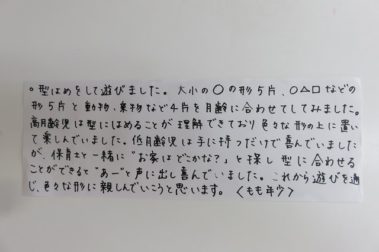 。型はめをして遊びました。大小の〇の形5片、〇△□などの
形5片と動物、果物など4片を月齢に合わせてしてみました。
高月齢児は型にはめることが理解できており色々な形の上に置い
て楽しんでいました。低月齢児は手に持つだけで喜んでいました
が、保育士と一緒に“お家はどこかな？”と探し型に合わせる
ことができると“あー”と声に出し喜んでいました。これから遊びを通
じ、色々な形に親しんでいこうと思います。